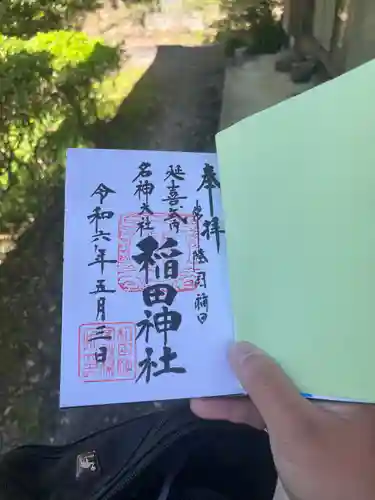 奉拝
常陸國稲田
延喜式内
名神大社
稲田神社
令和六年五月三日